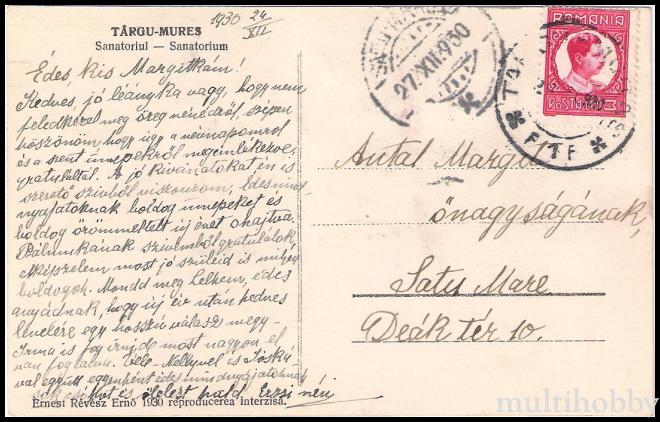 TÂRGU-MURES
Sanatoriul — Sanatorium
1930 24/XII
Édes, kis Margitkám!
Kedves, jó leányka vagy, hogy nem
feledkezel meg öreg nénédről, szépen
köszönöm, hogy úgy a névnapomról
és a szent ünnepekről megemlékezve,
gratuláltál. A jó kívánatokat én is
szerető szívből viszonzom, Édes mind-
nyájatoknak boldog ünnepeket és
boldog örömmeltelt új évet óhajtva.
Pálmukának szívemből gratulálok,
elképzelem most jó szüleid is milyen
boldogok. Mondd meg Lelkem, édes
anyádnak, hogy új év után kedves
levelére egy hosszú válasz megy.
Irma is fog írni, de most nagyon el
van foglalva. Nellyvel és
együtt egyenként édes mindnyájatoknak
sok és ölelést küld, Erzsi néni
Ernest Révész Ernő 1930 reproducerea interzisă.
27.XII.930
ROMANIA
POSTA 3
Antal Margit
őnagyságának,
Satu Mare
Deák tér 10.
multihobby